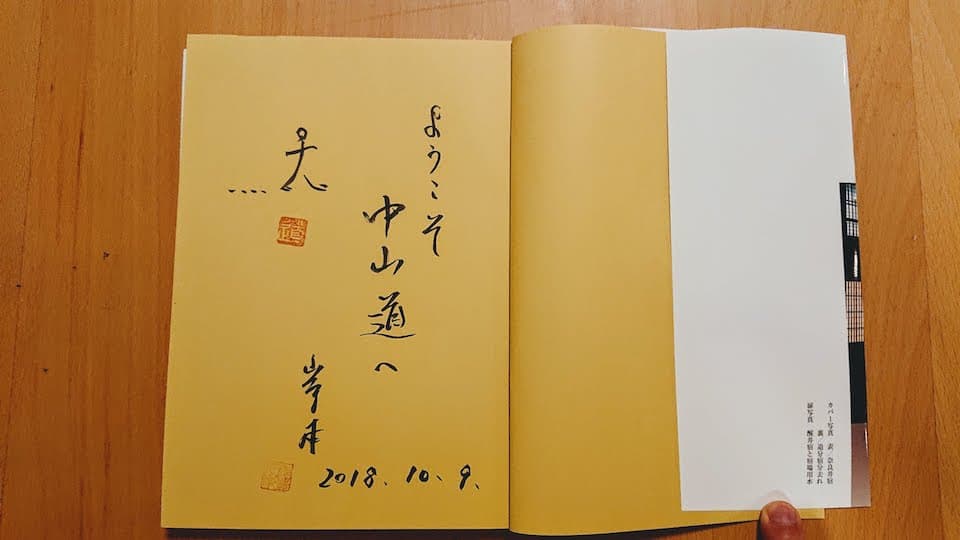 ようこそ
中山道へ
岸本
2018.10.9.
カバー写真 表/奈良井宿
裏/追分宿分去れ
扉写真 醒井宿と宿場用水